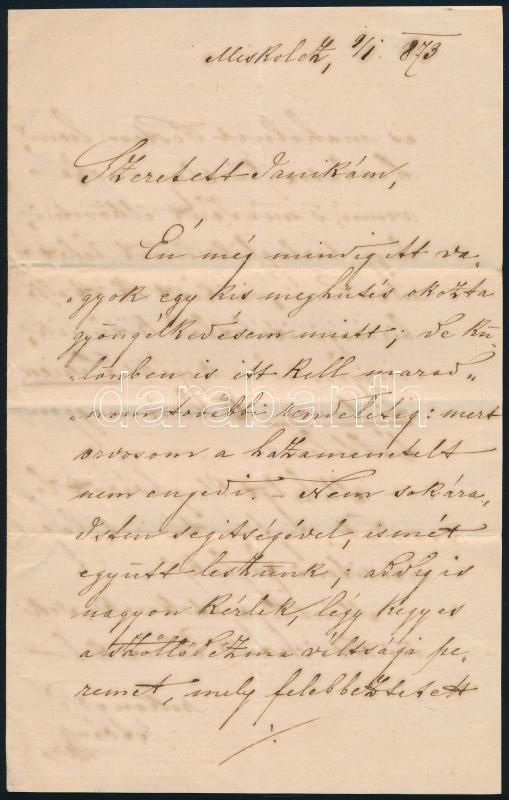 Miskolcz, 9/I. 873
Szeretett Janikám,
Én még mindig itt va„
„gyok egy kis meghütés okozta
gyöngélkedésem miatt; de kü„
„lönben is itt kell marad„
„nom további rendeletig: mert
orvosom a hazamenetelt
nem engedi. Nem sokára,
Isten segitségével, ismét
együtt leszünk; addig is
nagyon kérlek, légy kegyes
a szöllődézma váltsági pe„
remet, mely felebbeztetett
./.
darabanth